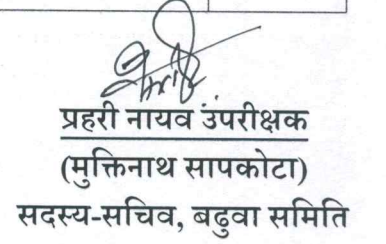 प्रहरी नायव उंपरीक्षक
(मुक्तिनाथ सापकोटा)
सदस्य-सचिव, बढुवा समिति